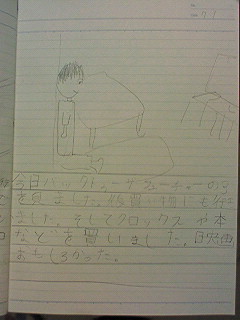 今日バックトゥーザフューチャーの3
を見ました。後買い物にも行き
ました。そしてクロックスや本
などを買いました。映画
おもしろかった。